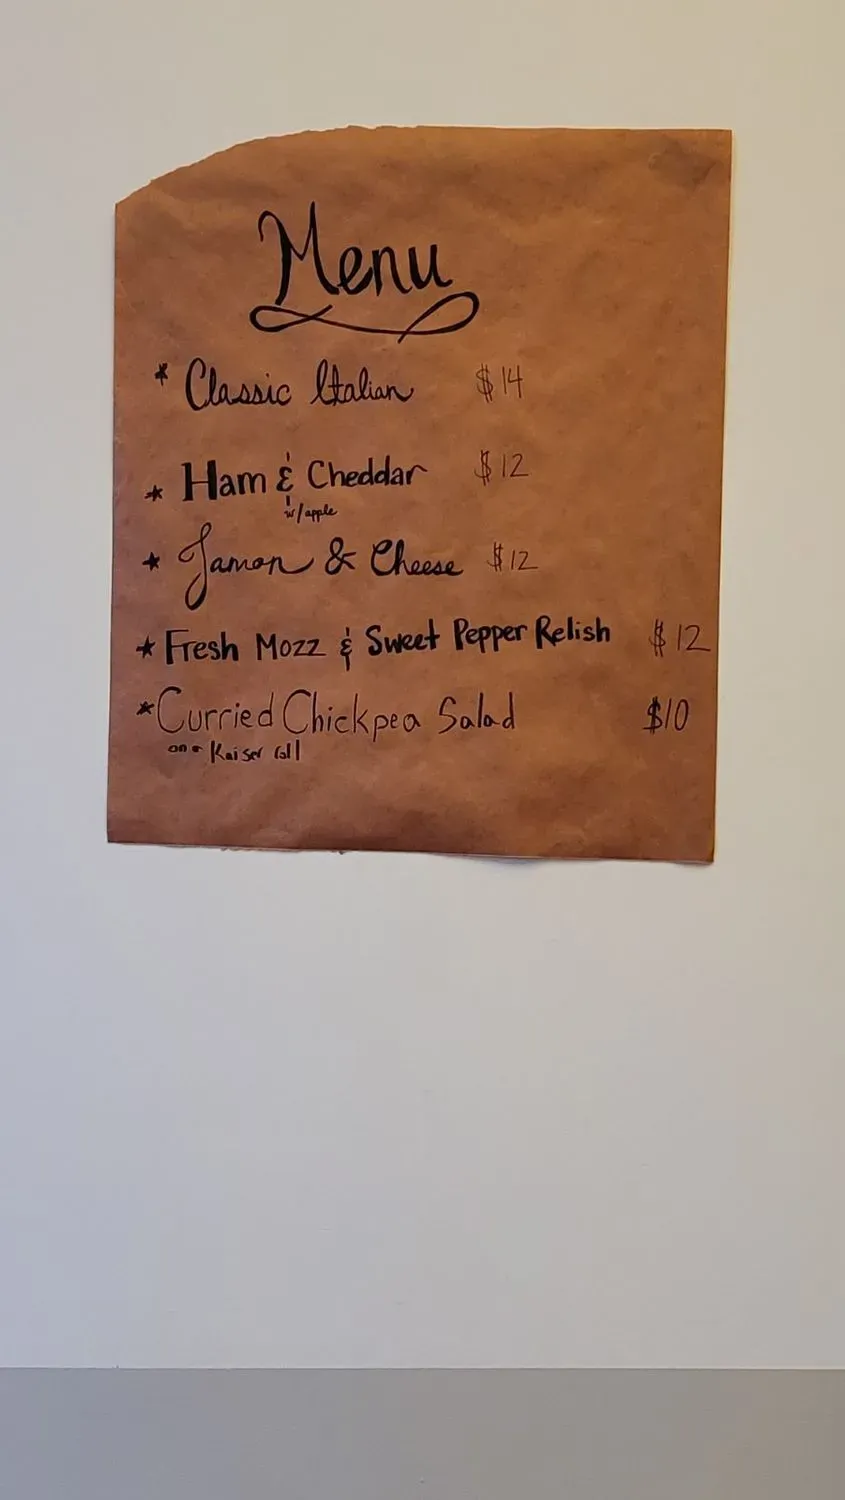 Menu
* Classic Italian $14
* Ham & Cheddar $12
w/apple
* Jamon & Cheese $12
* Fresh Mozz & Sweet Pepper Relish $12
* Curried Chickpea Salad $10
on a Kaiser roll